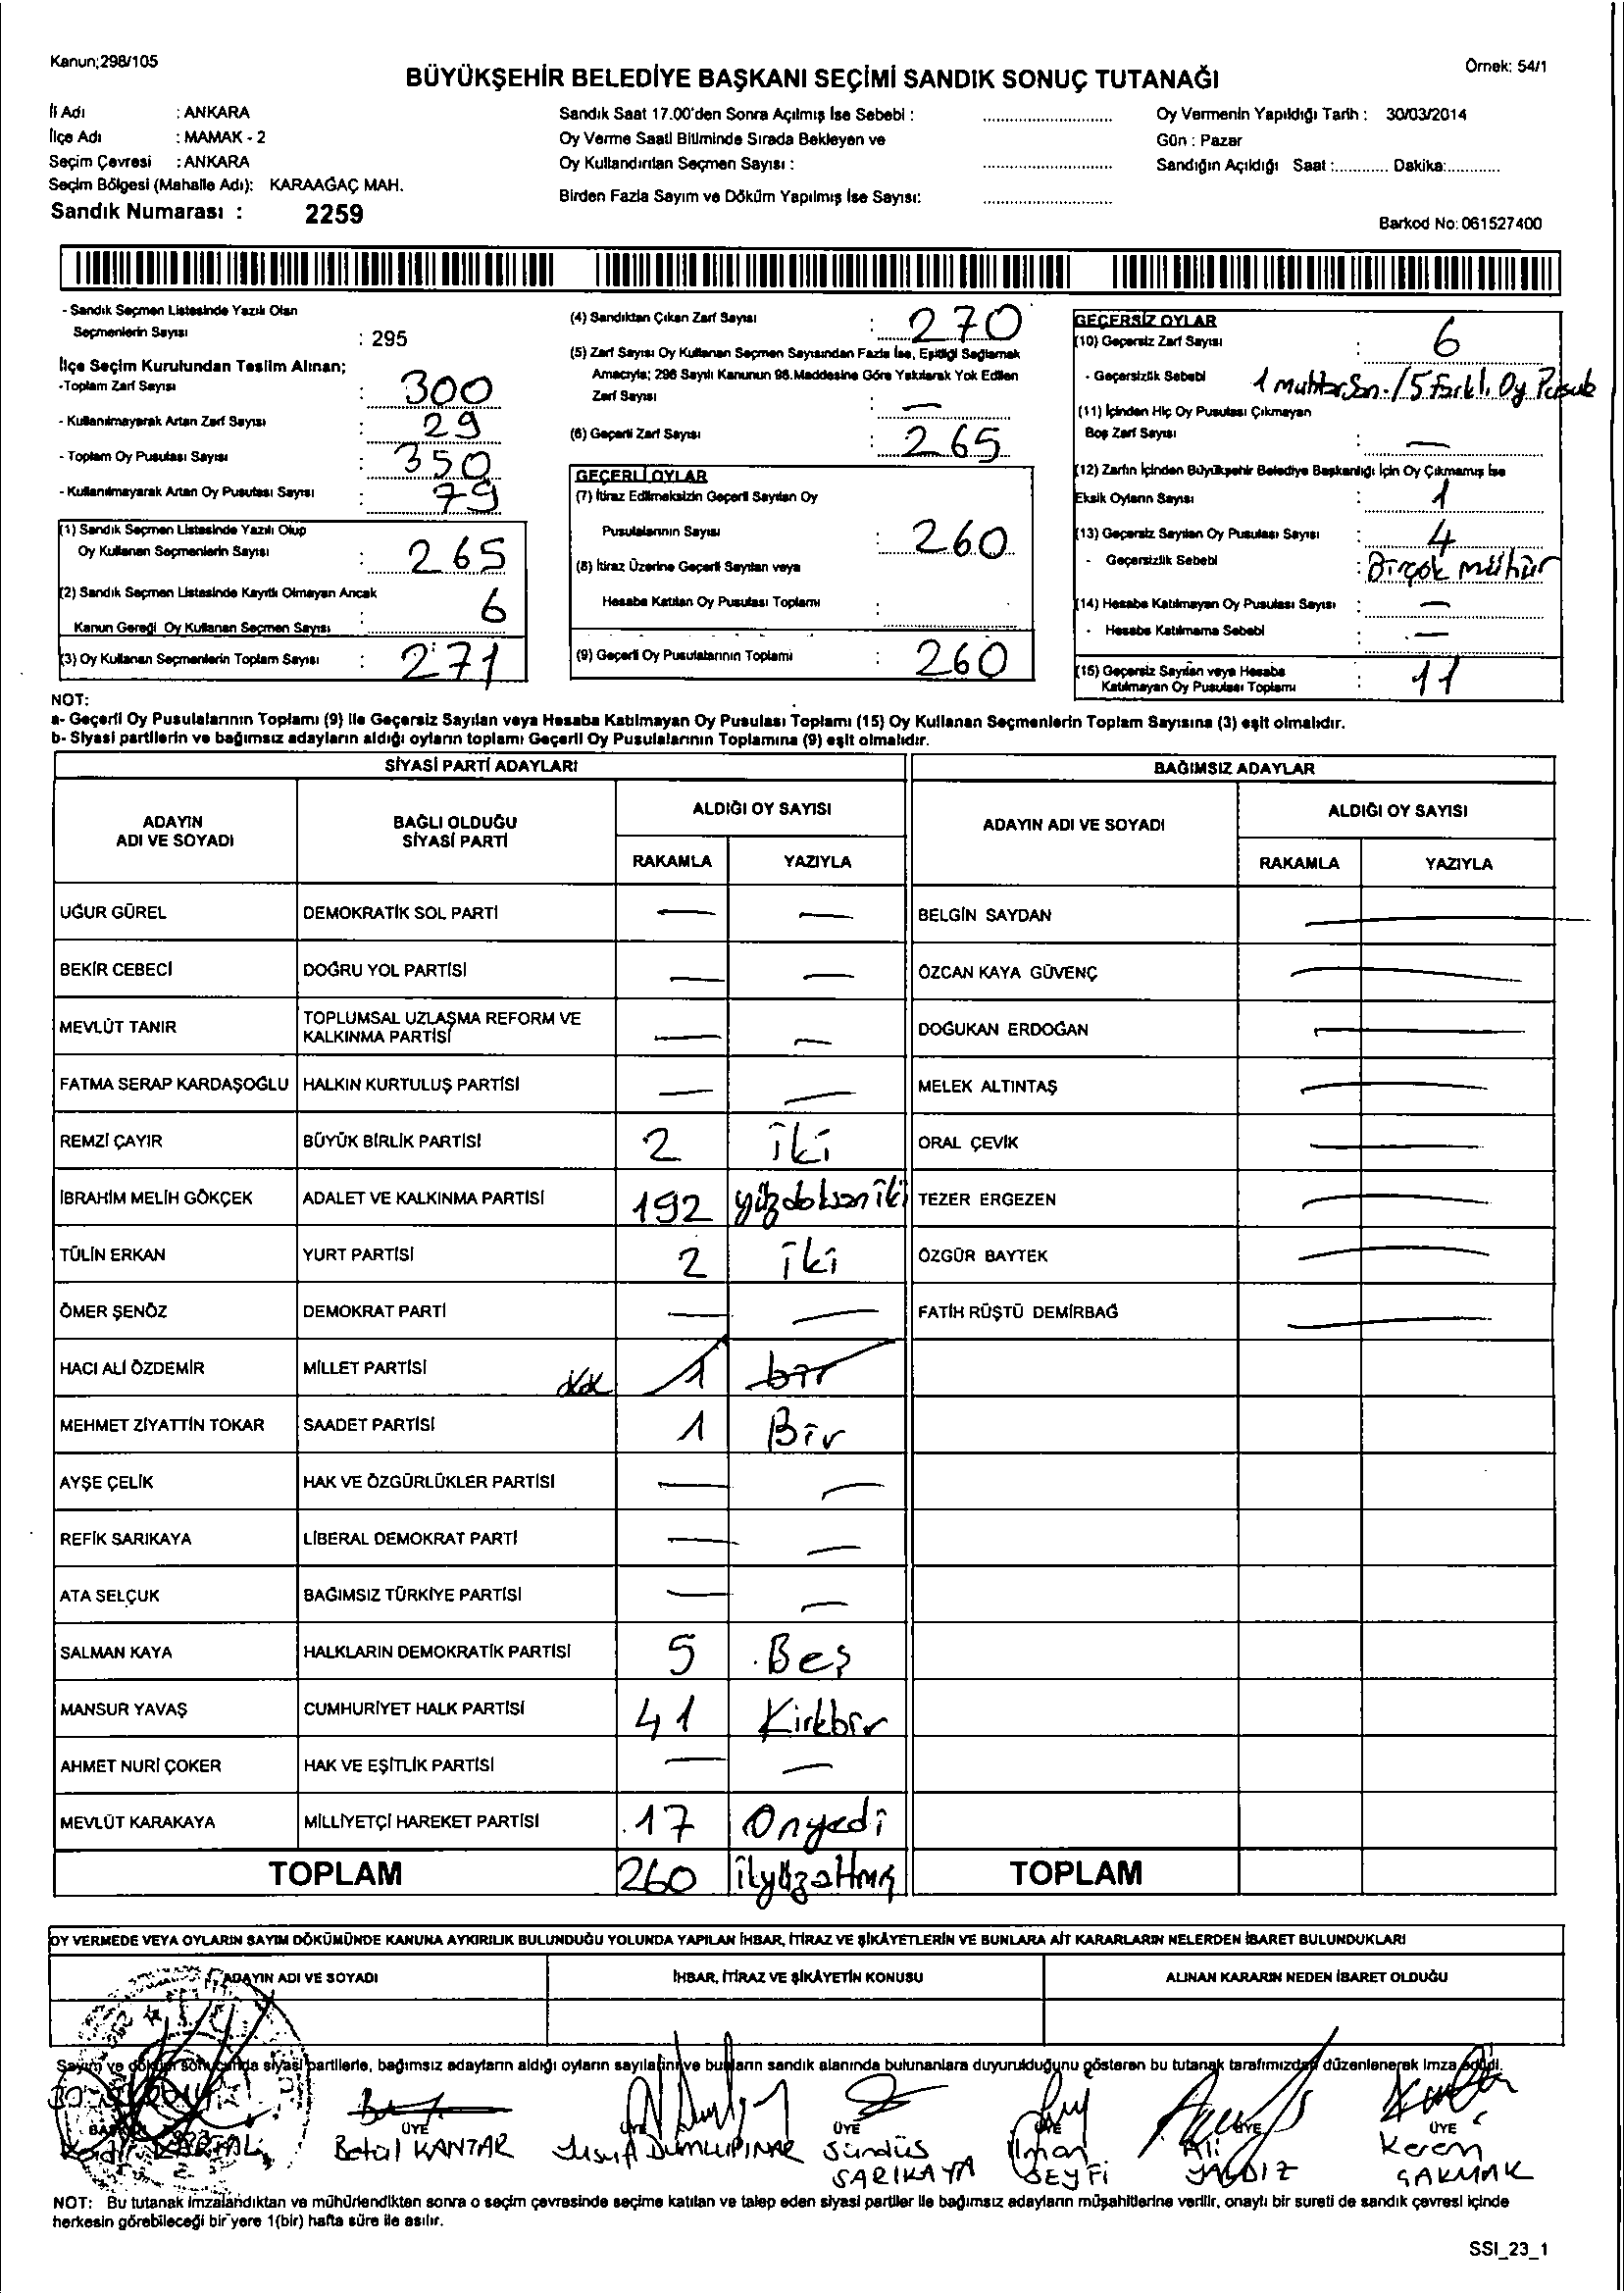 Kanun;298/105
Örnek: 54/1
BÜYÜKŞEHİR BELEDİYE BAŞKANI SEÇİMİ SANDIK SONUÇ TUTANAĞI
İl Adı : ANKARA
İlçe Adı : MAMAK - 2
Seçim Çevresi : ANKARA
Seçim Bölgesi (Mahalle Adı): KARAAĞAÇ MAH.
Sandık Numarası : 2259
Sandık Saat 17.00'den Sonra Açılmış İse Sebebi :
Oy Verme Saati Bitiminde Sırada Bekleyen ve
Oy Kullandırılan Seçmen Sayısı :
Birden Fazla Sayım ve Döküm Yapılmış İse Sayısı:
Oy Vermenin Yapıldığı Tarih : 30/03/2014
Gün : Pazar
Sandığın Açıldığı Saat :............ Dakika:............
Barkod No: 061527400
- Sandık Seçmen Listesinde Yazılı Olan
Seçmenlerin Sayısı : 295
İlçe Seçim Kurulundan Teslim Alınan;
-Toplam Zarf Sayısı : 300
- Kullanılmayarak Artan Zarf Sayısı : 29
- Toplam Oy Pusulası Sayısı : 350
- Kullanılmayarak Artan Oy Pusulası Sayısı : 79
(1) Sandık Seçmen Listesinde Yazılı Olup
Oy Kullanan Seçmenlerin Sayısı : 265
(2) Sandık Seçmen Listesinde Kayıtlı Olmayan Ancak
Kanun Gereği Oy Kullanan Seçmen Sayısı : 6
(3) Oy Kullanan Seçmenlerin Toplam Sayısı : 271
(4) Sandıktan Çıkan Zarf Sayısı : 270
(5) Zarf Sayısı Oy Kullanan Seçmen Sayısından Fazla İse, Eşitliği Sağlamak
Amacıyla; 298 Sayılı Kanunun 98.Maddesine Göre Yakılarak Yok Edilen
Zarf Sayısı : —
(6) Geçerli Zarf Sayısı : 265
GEÇERLİ OYLAR
(7) İtiraz Edilmeksizin Geçerli Sayılan Oy
Pusulalarının Sayısı : 260
(8) İtiraz Üzerine Geçerli Sayılan veya
Hesaba Katılan Oy Pusulası Toplamı :
(9) Geçerli Oy Pusulalarının Toplamı : 260
GEÇERSİZ OYLAR
(10) Geçersiz Zarf Sayısı : 6
- Geçersizlik Sebebi 1 muhtar / 5 Farklı Oy
(11) İçinden Hiç Oy Pusulası Çıkmayan
Boş Zarf Sayısı : —
(12) Zarfın İçinden Büyükşehir Belediye Başkanlığı İçin Oy Çıkmamış İse
Eksik Oyların Sayısı : 1
(13) Geçersiz Sayılan Oy Pusulası Sayısı : 4
- Geçersizlik Sebebi : Birçok mühür
(14) Hesaba Katılmayan Oy Pusulası Sayısı : —
- Hesaba Katılmama Sebebi : —
(15) Geçersiz Sayılan veya Hesaba
Katılmayan Oy Pusulası Toplamı : 11
NOT:
a- Geçerli Oy Pusulalarının Toplamı (9) ile Geçersiz Sayılan veya Hesaba Katılmayan Oy Pusulası Toplamı (15) Oy Kullanan Seçmenlerin Toplam Sayısına (3) eşit olmalıdır.
b- Siyasi partilerin ve bağımsız adayların aldığı oyların toplamı Geçerli Oy Pusulalarının Toplamına (9) eşit olmalıdır.
SİYASİ PARTİ ADAYLARI
BAĞIMSIZ ADAYLAR
ADAYIN ADI VE SOYADI
BAĞLI OLDUĞU SİYASİ PARTİ
ALDIĞI OY SAYISI
RAKAMLA YAZIYLA
ADAYIN ADI VE SOYADI
ALDIĞI OY SAYISI
RAKAMLA YAZIYLA
UĞUR GÜREL DEMOKRATİK SOL PARTİ — — BELGİN SAYDAN —
BEKİR CEBECİ DOĞRU YOL PARTİSİ — — ÖZCAN KAYA GÜVENÇ —
MEVLÜT TANIR TOPLUMSAL UZLAŞMA REFORM VE KALKINMA PARTİSİ — — DOĞUKAN ERDOĞAN —
FATMA SERAP KARDAŞOĞLU HALKIN KURTULUŞ PARTİSİ — — MELEK ALTINTAŞ —
REMZİ ÇAYIR BÜYÜK BİRLİK PARTİSİ 2 iki ORAL ÇEVİK —
İBRAHİM MELİH GÖKÇEK ADALET VE KALKINMA PARTİSİ 192 yüzdoksaniki TEZER ERGEZEN —
TÜLİN ERKAN YURT PARTİSİ 2 iki ÖZGÜR BAYTEK —
ÖMER ŞENÖZ DEMOKRAT PARTİ — — FATİH RÜŞTÜ DEMİRBAĞ —
HACI ALİ ÖZDEMİR MİLLET PARTİSİ 1 bir
MEHMET ZİYATTİN TOKAR SAADET PARTİSİ 1 Bir
AYŞE ÇELİK HAK VE ÖZGÜRLÜKLER PARTİSİ — —
REFİK SARIKAYA LİBERAL DEMOKRAT PARTİ — —
ATA SELÇUK BAĞIMSIZ TÜRKİYE PARTİSİ — —
SALMAN KAYA HALKLARIN DEMOKRATİK PARTİSİ 5 Beş
MANSUR YAVAŞ CUMHURİYET HALK PARTİSİ 41 Kırkbir
AHMET NURİ ÇOKER HAK VE EŞİTLİK PARTİSİ — —
MEVLÜT KARAKAYA MİLLİYETÇİ HAREKET PARTİSİ 17 Onyedi
TOPLAM 260 TOPLAM
OY VERMEDE VEYA OYLARIN SAYIM DÖKÜMÜNDE KANUNA AYKIRILIK BULUNDUĞU YOLUNDA YAPILAN İHBAR, İTİRAZ VE ŞİKÂYETLERİN VE BUNLARA AİT KARARLARIN NELERDEN İBARET BULUNDUKLARI
ADAYIN ADI VE SOYADI
İHBAR, İTİRAZ VE ŞİKÂYETİN KONUSU
ALINAN KARARIN NEDEN İBARET OLDUĞU
Sayım ve döküm sonucunda siyasi partilerle, bağımsız adayların aldığı oyların sayılarını ve bunların sandık alanında bulunanlara duyurulduğunu gösteren bu tutanak tarafımızdan düzenlenerek imza edildi.
ÜYE ÜYE ÜYE ÜYE ÜYE ÜYE
KARTAL Betül KANTAR Yusuf DUMLUPINAR Sündüs SARIKAYA İlhan SEYFİ Ali YALDIZ Kerem ÇAKMAK
NOT: Bu tutanak imzalandıktan ve mühürlendikten sonra o seçim çevresinde seçime katılan ve talep eden siyasi partiler ile bağımsız adayların müşahitlerine verilir, onaylı bir sureti de sandık çevresi içinde
herkesin görebileceği bir yere 1(bir) hafta süre ile asılır.
SSI_23_1